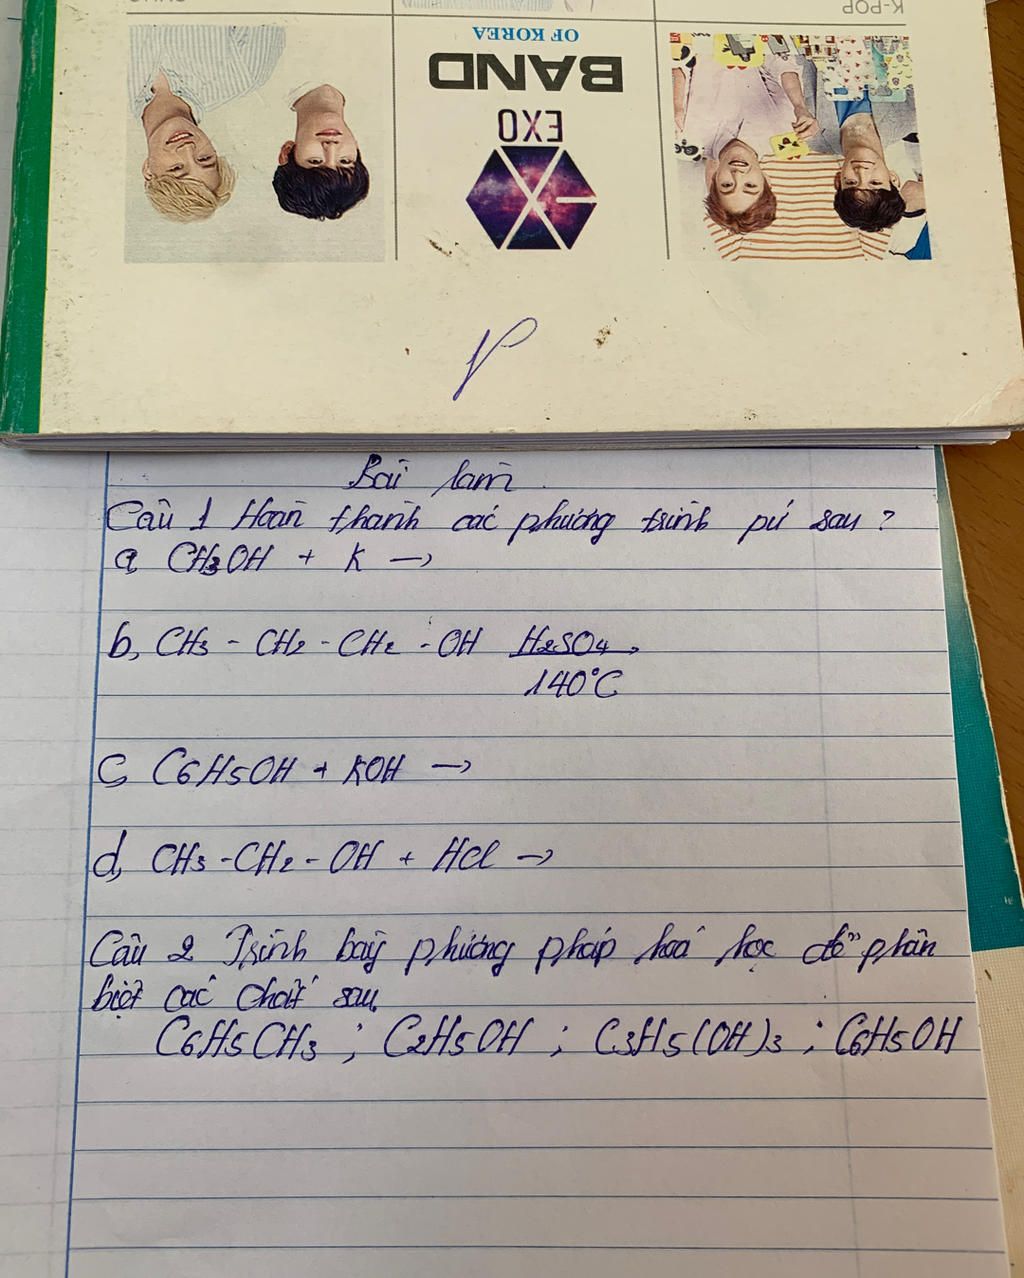 K-POP
OF KOREA
BAND
EXO
Bài làm
Câu 1 Hoàn thành các phương trình pứ sau ?
a, CH3OH + K →
b, CH3 - CH2 - CH2 - OH H2SO4 →
140°C
c, C6H5OH + KOH →
d, CH3 - CH2 - OH + HCl →
Câu 2 Trình bày phương pháp hoá học để phân
biệt các chất sau
C6H5CH3 ; C2H5OH ; C3H5(OH)3 ; C6H5OH